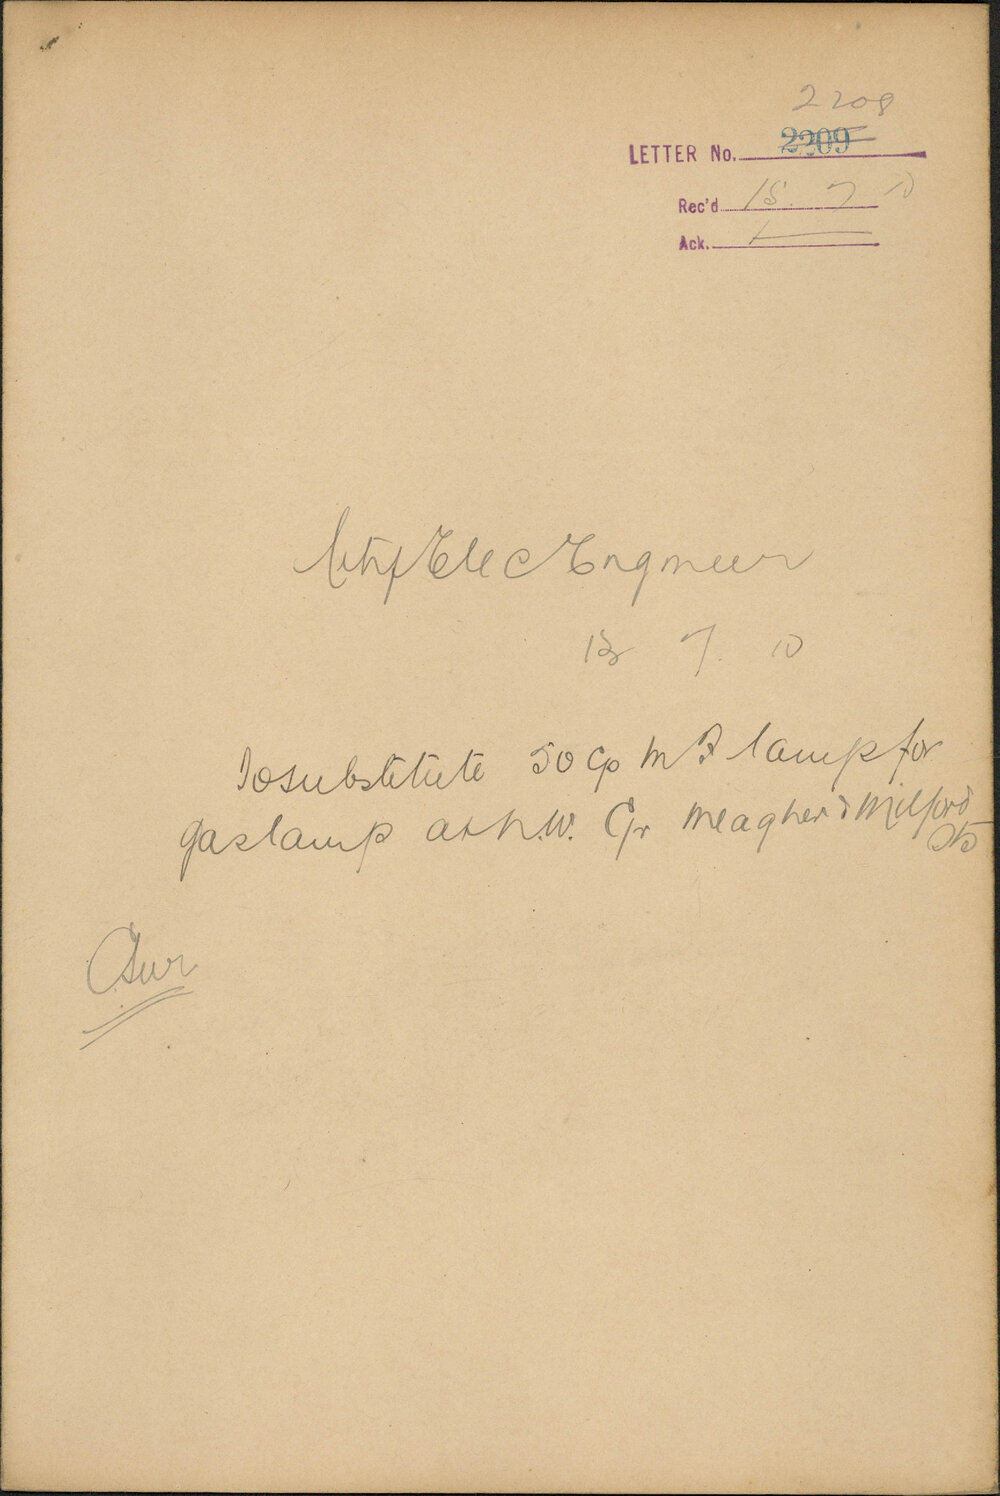 2208
LETTER No. 2209
Rec'd 15. 7 10
Ack.
City Elec Engineer
13 7. 10
To substitute 50 Cp M F lamp for
gas lamp at N.W. Cr Meagher & Milford
Sts